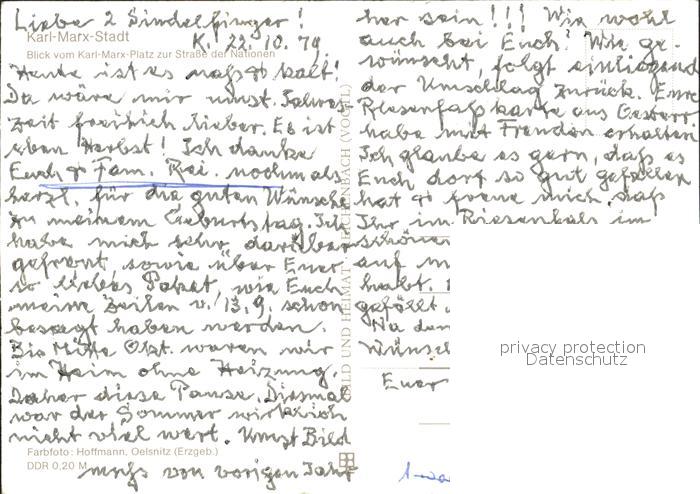 Liebe 2 Sindelfinger!
Karl-Marx-Stadt
K. 22.10.79
Blick vom Karl-Marx-Platz zur Straße der Nationen
Heute ist es naß & kalt!
Da wäre mir umst. Jahres
zeit freilich lieber. Es ist
eben Herbst! Ich danke
Euch & Fam. Rei. nochmals
herzl. für die guten Wünsche
zu meinem Geburtstag. Ich
habe mich sehr darüber
gefreut sowie über Euer
so liebes Paket, wie Euch
meine Zeilen v. 13.9. schon
besagt haben werden.
Bis Mitte Okt. waren wir
im Heim ohne Heizung.
Daher diese Pause. Diesmal
war der Sommer wirklich
nicht viel wert. Umst Bild
Farbfoto: Hoffmann, Oelsnitz (Erzgeb.)
DDR 0,20 M
muß von vorigen Jahr
BILD UND HEIMAT REICHENBACH (VOGTL)
her sein!!! Wie wohl
auch bei Euch? Wie ge-
wünscht, folgt einliegend
der Umschlag zurück. Eure
Riesenfaßkarte aus Österr.
habe mit Freuden erhalten
Ich glaube es gern, daß es
Euch dort so gut gefallen
hat & freue mich, daß
Ihr im Riesenhals im
schönen
auf
habt.
gefällt
Na dann
wünsch
Euer
privacy protection
Datenschutz